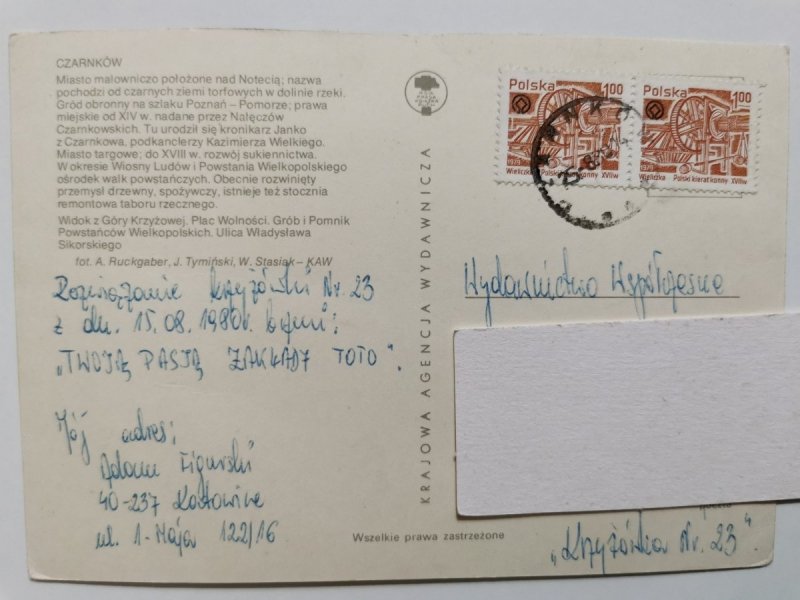 CZARNKÓW
Miasto malowniczo położone nad Notecią; nazwa
pochodzi od czarnych ziemi torfowych w dolinie rzeki.
Gród obronny na szlaku Poznań – Pomorze; prawa
miejskie od XIV w. nadane przez Nałęczów
Czarnkowskich. Tu urodził się kronikarz Janko
z Czarnkowa, podkanclerzy Kazimierza Wielkiego.
Miasto targowe; do XVIII w. rozwój sukiennictwa.
W okresie Wiosny Ludów i Powstania Wielkopolskiego
ośrodek walk powstańczych. Obecnie rozwinięty
przemysł drzewny, spożywczy, istnieje też stocznia
remontowa taboru rzecznego.
Widok z Góry Krzyżowej. Plac Wolności. Grób i Pomnik
Powstańców Wielkopolskich. Ulica Władysława
Sikorskiego
fot. A. Ruckgaber, J. Tymiński, W. Stasiak – KAW
Rozwiązanie krzyżówki Nr. 23
z dn. 15.08.1980r. brzmi:
„TWOJĄ PASJĄ ZAKŁADY TOTO".
Mój adres:
Adam Figurski
40-237 Katowice
ul. 1-Maja 122/16
KRAJOWA AGENCJA WYDAWNICZA
Wszelkie prawa zastrzeżone
Polska 1,00
1979 Wieliczka Polski kierat konny XVII w
Polska 1,00
1979 Wieliczka Polski kierat konny XVII w
Wydawnictwo Współczesne
„Krzyżówka Nr. 23".